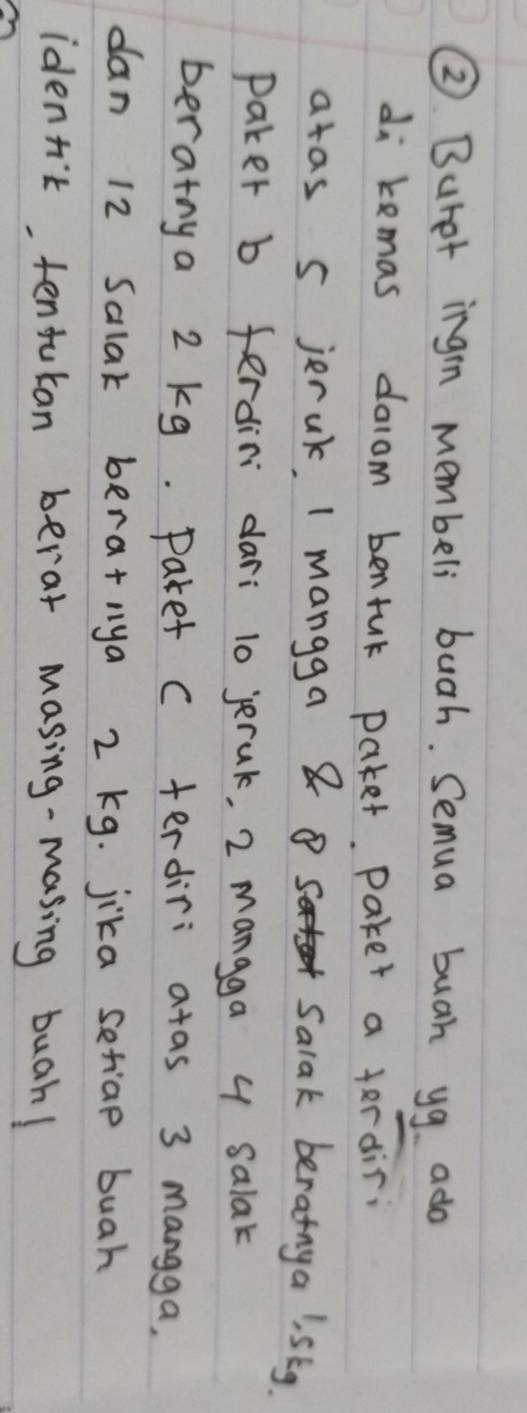 ② Butet ingin membeli buah. Semua buah yg ada
di kemas dalam bentuk paket. Paket a terdiri
atas 5 jeruk, 1 mangga & 8 salak beratnya 1,5kg.
Paket b terdiri dari 10 jeruk, 2 mangga 4 salak
beratnya 2 kg. Paket C terdiri atas 3 mangga,
dan 12 salak beratnya 2 kg. jika setiap buah
identik, tentukan berat masing-masing buah!